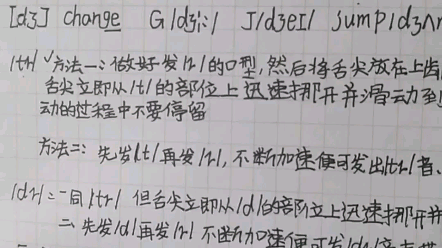 [dʒ] change G/dʒi:/ J/dʒeI/ jump/dʒʌ
/tr/ √方法一:做好发/r/的口型,然后将舌尖放在上齿
舌尖立即从/t/的部位上迅速挪开并滑动到
动的过程中不要停留
方法二:先发/t/再发/r/,不断加速便可发出/tr/音、
/dr/:一同/tr/ 但舌尖立即从/d/的部位上迅速挪开并
二、先发/d/再发/r/ 不断加速便可发/dr/音